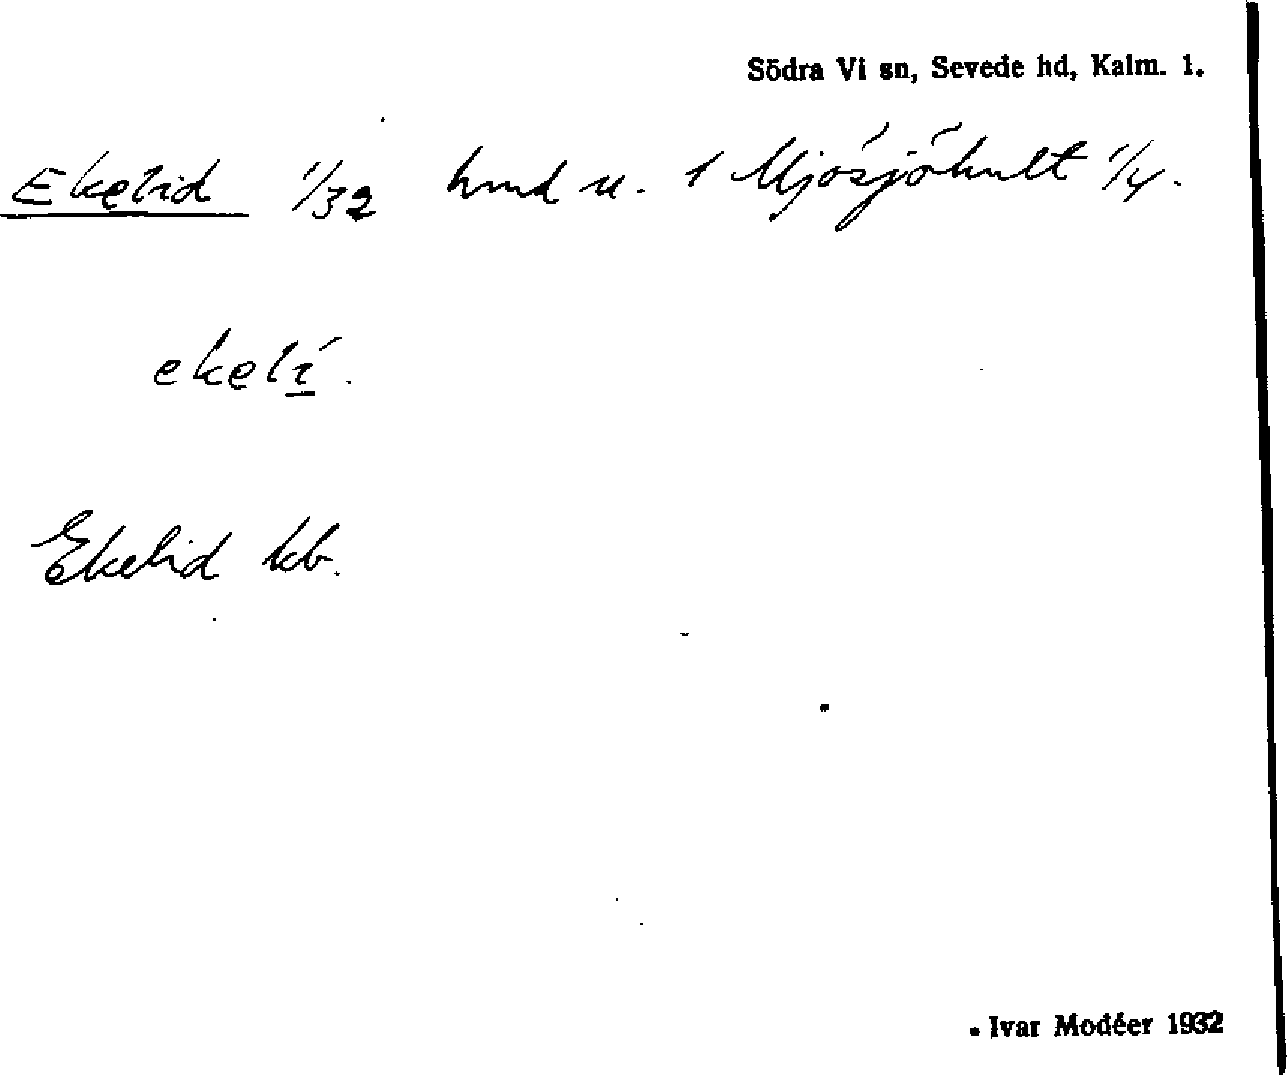 Södra Vi sn, Sevede hd, Kalm. l.
Ekelid 1/32 hmd u. 1 Mjösjöhult 1/4.
ekelí.
Ekelid kb.
Ivar Modéer 1932